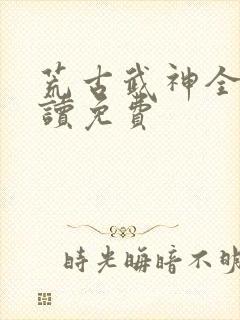 荒古武神全
讀免費
時光晦暗不明